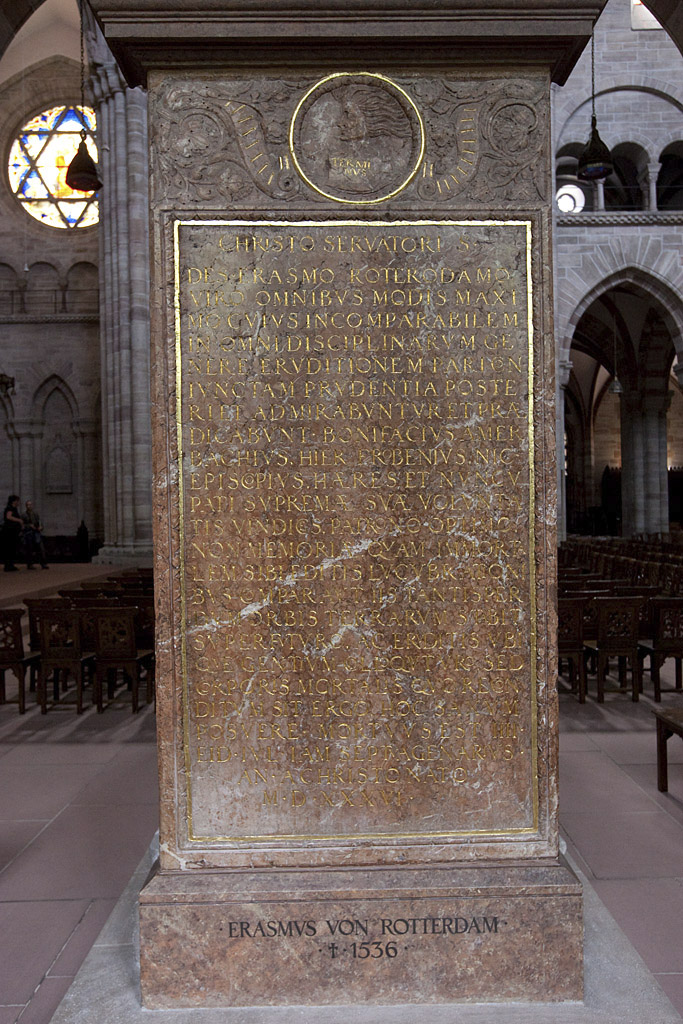 TERMI
NVS
CHRISTO SERVATORI S.
DES. ERASMO ROTERODAMO
VIRO OMNIBVS MODIS MAXI
MO CVIVS INCOMPARABILEM
IN OMNI DISCIPLINARVM GE
NERE ERVDITIONEM PARI CON
IVNCTAM PRVDENTIA POSTE
RI ET ADMIRABVNTVR ET PRÆ
DICABVNT BONIFACIVS AMER
BACHIVS, HIER. FROBENIVS, NIC.
EPISCOPIVS HÆRED. ET NVNCV
PATI SVPREMÆ SVÆ VOLVNTA
TIS VINDICES PATRONO OPTIMO
NON MEMORIÆ QVAM IMMORTA
LEM SIBI EDITIS LVCVBRATION
BVS COMPARAVIT IIS TANTISPER
ORBIS TERRARVM STABIT
SVPERFVTVRO AC ERVDITIS VBI
QVE GENTIVM COLLOQVVTVRO SED
CORPORIS MORTALIS QVO RECON
DITVM SIT ERGO HOC SAXVM
POSVERE MORTVVS EST IIII
EID. IVL. IAM SEPTVAGENARIVS
AN. A CHRISTO NATO
M D XXXVI
· ERASMVS VON ROTTERDAM ·
· † · 1536 ·